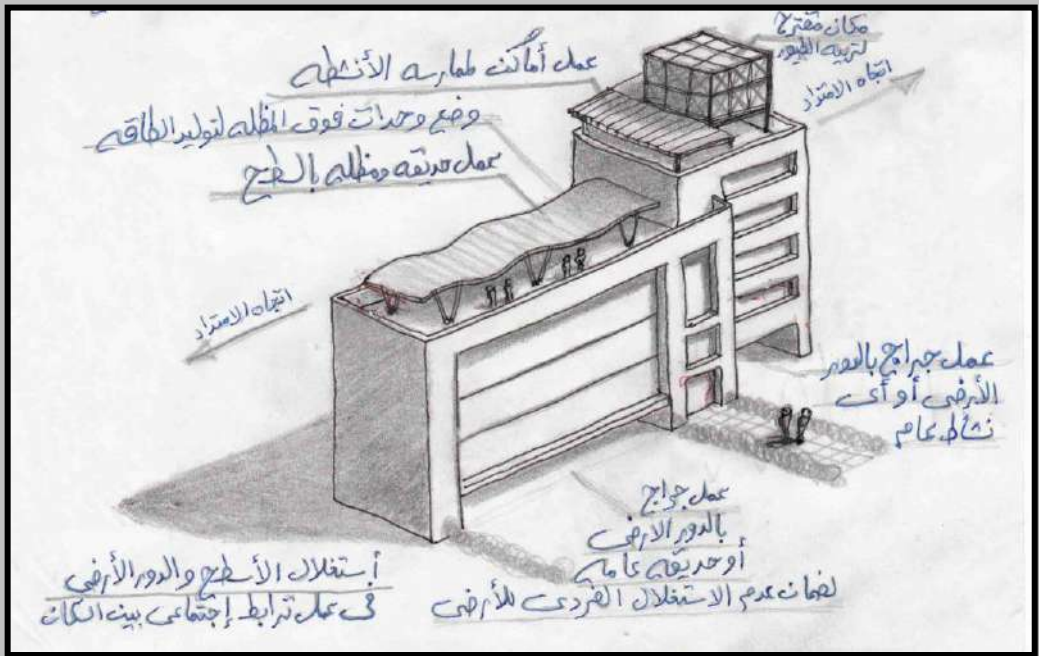 مكان مقترح
لتربيه الطيور
اتجاه الامتداد
عمل أماكن لممارسه الأنشطه
وضع وحدات فوق المظله لتوليد الطاقه
عمل حديقه ومظله بالسطح
اتجاه الامتداد
عمل جراج بالدور
الأرضى أو أى
نشاط عام
عمل جراج
بالدور الارضى
أو حديقه عامه
لضمان عدم الاستغلال الفردى للأرضى
أستغلال الأسطح والدور الأرضى
فى عمل ترابط إجتماعى بين السكان